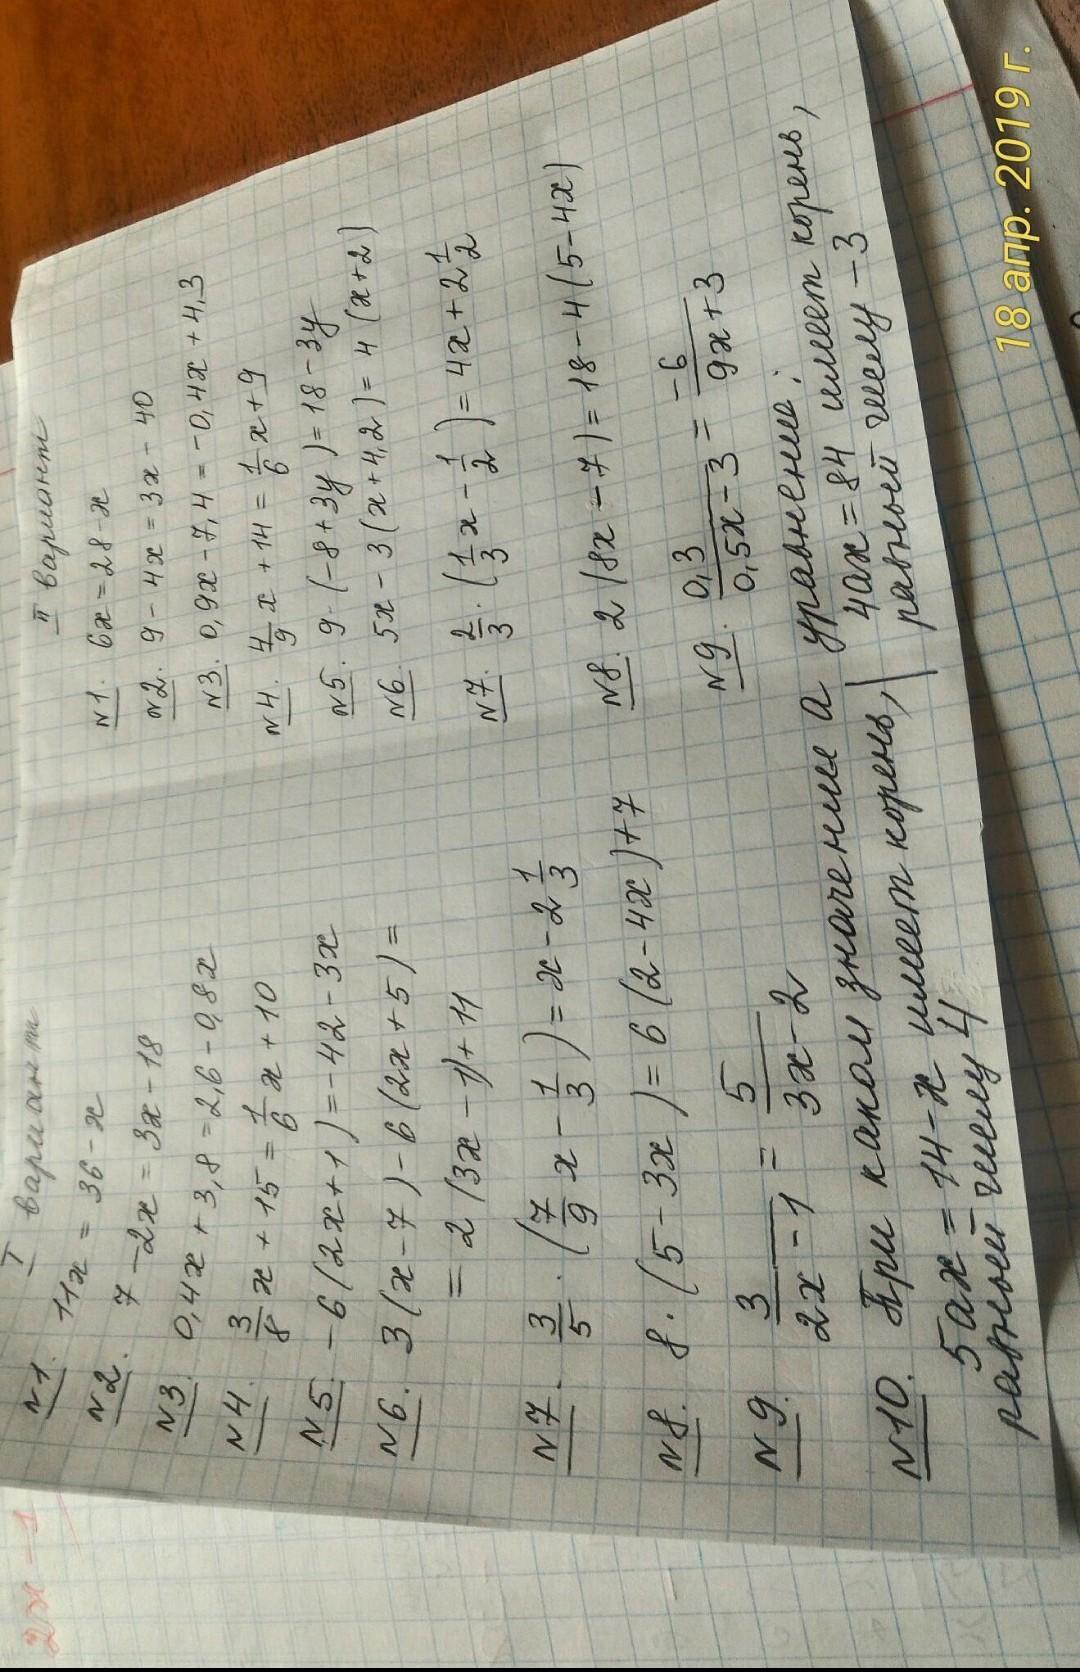 I вариант
№1. 11x = 36 - x
№2. 7 - 2x = 3x - 18
№3. 0,4x + 3,8 = 2,6 - 0,8x
№4. 3/8 x + 15 = 1/6 x + 10
№5. -6(2x+1) = -42 - 3x
№6. 3(x-7) - 6(2x+5) =
= 2(3x-1)+11
№7. 3/5 · (7/9 x - 1/3) = x - 2 1/3
№8. 8·(5-3x) = 6(2-4x)+7
№9. 3/(2x-1) = 5/(3x-2)
II вариант
№1. 6x = 28 - x
№2. 9 - 4x = 3x - 40
№3. 0,9x - 7,4 = -0,4x + 4,3
№4. 4/9 x + 14 = 1/6 x + 9
№5. 9·(-8+3y) = 18 - 3y
№6. 5x - 3(x+4,2) = 4(x+2)
№7. 2/3 · (1/3 x - 1/2) = 4x + 2 1/2
№8. 2(8x-7) = 18 - 4(5-4x)
№9. 0,3/(0,5x-3) = -6/(9x+3)
№10. При каком значении a уравнение:
5ax = 14 - x имеет корень,
равный числу 4
4ax = 84 имеет корень,
равный числу -3
2x = 1
18 апр. 2019 г.